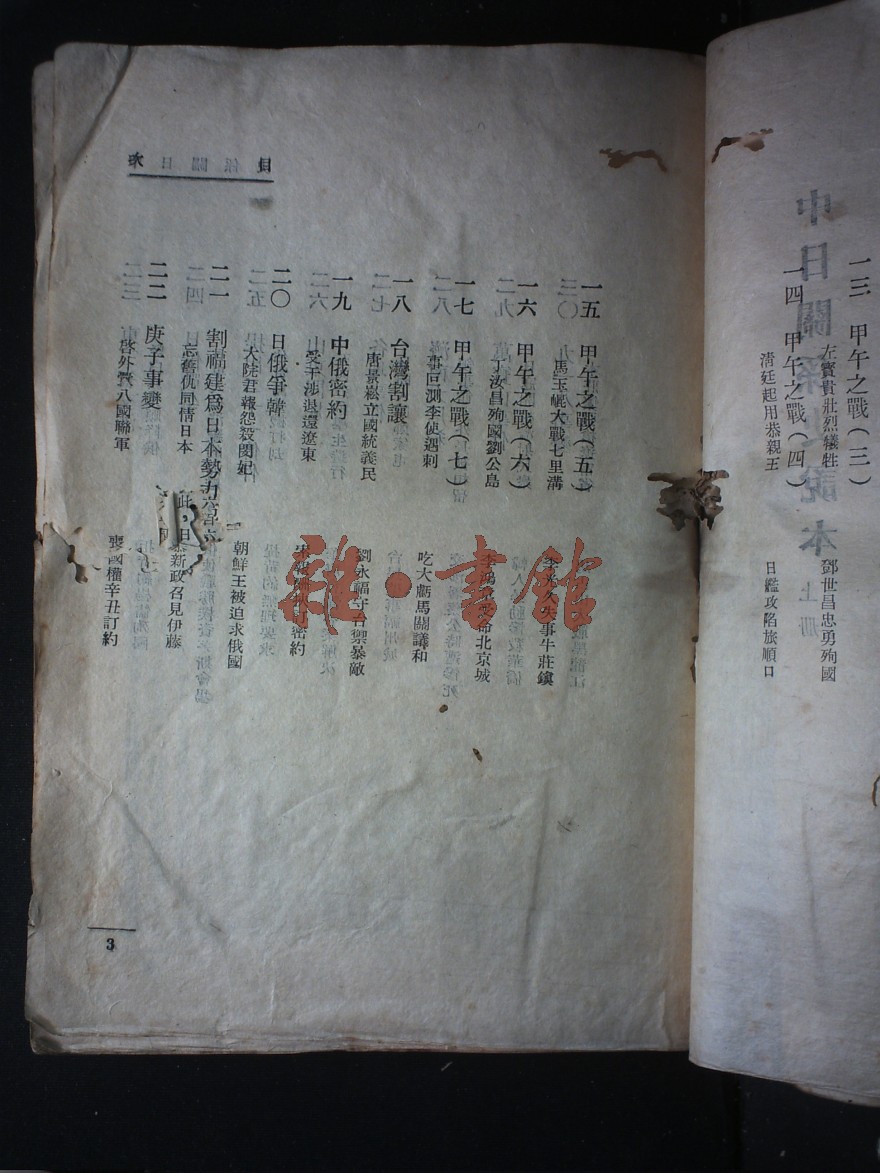 一三　甲午之戰(三)
左寶貴壯烈犧牲　鄧世昌忠勇殉國
一四　甲午之戰(四)
清廷起用恭親王　日艦攻陷旅順口
目次
一五　甲午之戰(五)
馬玉崐大戰七里溝　李光久失事牛莊鎮
一六　甲午之戰(六)
丁汝昌殉國劉公島　李鴻章　命北京城
一七　甲午之戰(七)
事叵測李使遇刺　吃大虧馬關議和
一八　台灣割讓
唐景崧立國統義民　劉永福守台禦暴敵
一九　中俄密約
愛干涉退還遼東　訂密約
二〇　日俄爭韓
大陸君報怨殺閔妃　朝鮮王被迫求俄國
二一　割福建爲日本勢力
忘舊仇同情日本　新政召見伊藤
二二　庚子事變
啓外釁八國聯軍　喪國權辛丑訂約
3
雜·書館